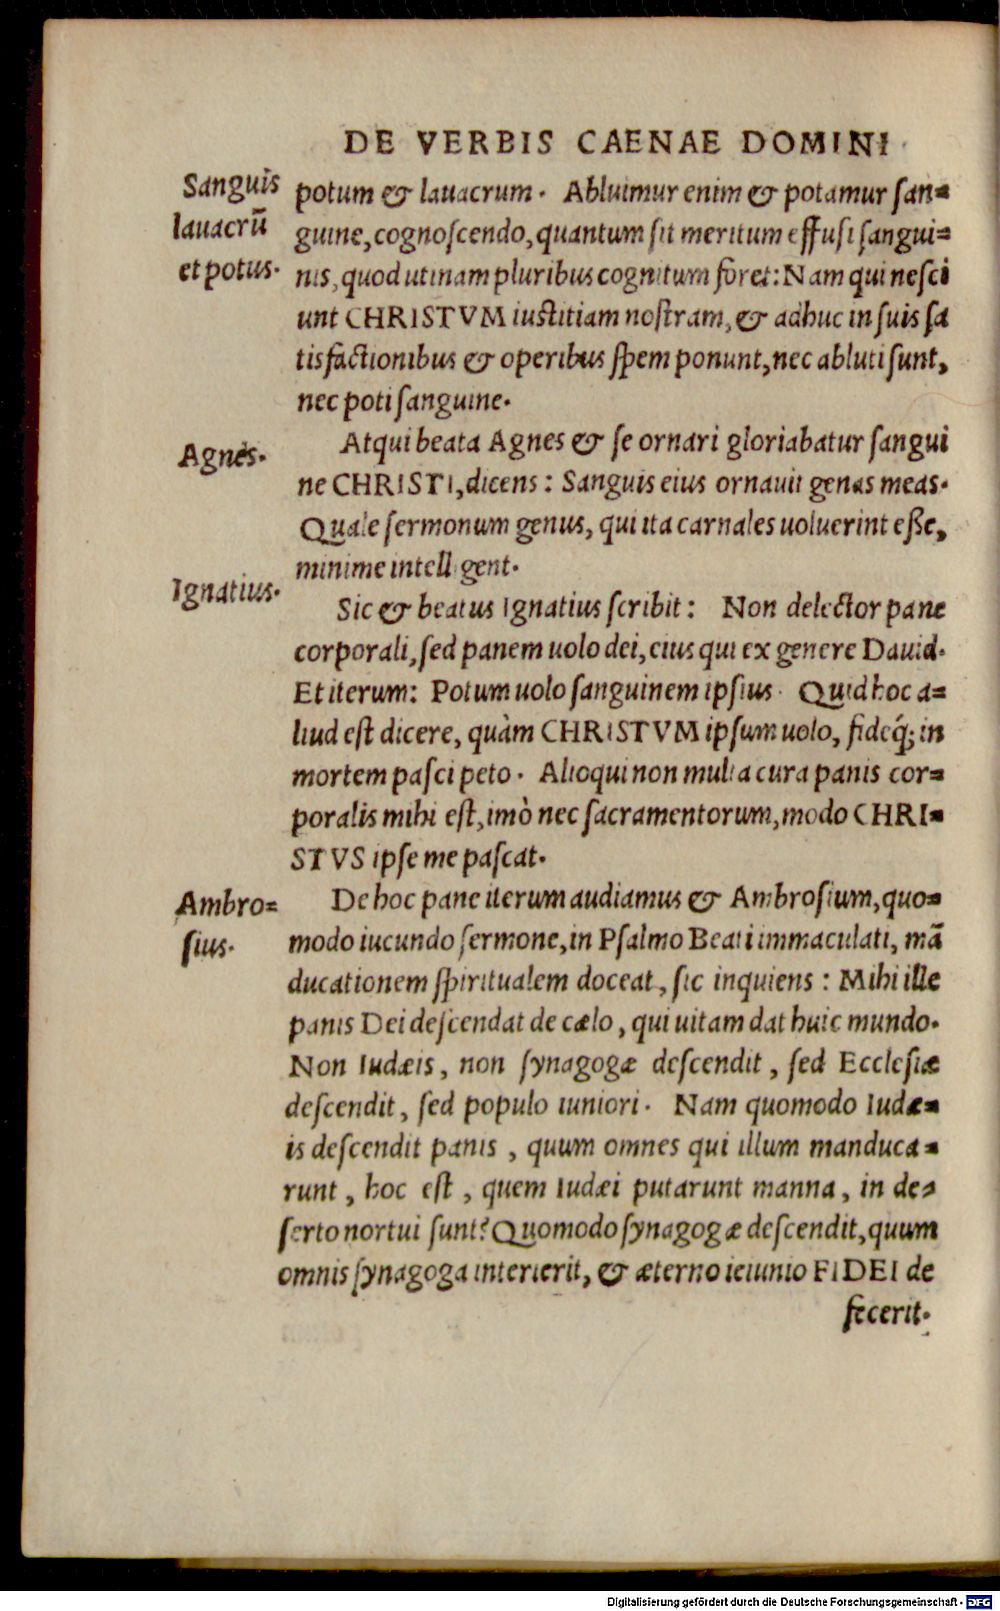 DE VERBIS CAENAE DOMINI
Sanguis
lauacrū
et potus.
potum & lauacrum. Abluimur enim & potamur san-
guine, cognoscendo, quantum sit meritum effusi sangui-
nis, quod utinam pluribus cognitum foret: Nam qui nesci
unt CHRISTVM iustitiam nostram, & adhuc in suis sa
tisfactionibus & operibus spem ponunt, nec abluti sunt,
nec poti sanguine.
Agnes.
Atqui beata Agnes & se ornari gloriabatur sangui
ne CHRISTI, dicens: Sanguis eius ornauit genas meas.
Quale sermonum genus, qui ita carnales uoluerint eße,
minime intelligent.
Ignatius.
Sic & beatus Ignatius scribit: Non delector pane
corporali, sed panem uolo dei, eius qui ex genere Dauid.
Et iterum: Potum uolo sanguinem ipsius. Quid hoc a-
liud est dicere, quàm CHRISTVM ipsum uolo, fideq́; in
mortem pasci peto. Alioqui non multa cura panis cor-
poralis mihi est, imò nec sacramentorum, modo CHRI-
STVS ipse me pascat.
Ambro-
sius.
De hoc pane iterum audiamus & Ambrosium, quo-
modo iucundo sermone, in Psalmo Beati immaculati, mā
ducationem spiritualem doceat, sic inquiens: Mihi ille
panis Dei descendat de cælo, qui uitam dat huic mundo.
Non Iudæis, non synagogæ descendit, sed Ecclesiæ
descendit, sed populo iuniori. Nam quomodo Iudæ-
is descendit panis, quum omnes qui illum manduca-
runt, hoc est, quem Iudæi putarunt manna, in de-
serto nortui sunt? Quomodo synagogæ descendit, quum
omnis synagoga interierit, & æterno ieiunio FIDEI de
fecerit.
Digitalisierung gefördert durch die Deutsche Forschungsgemeinschaft - DFG